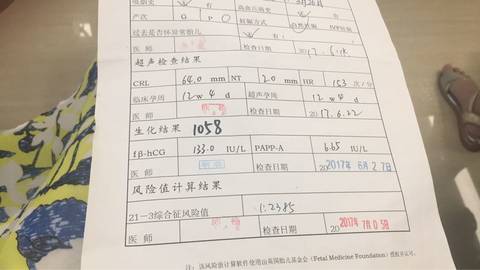 吸烟史 有
产次 G P 0 受孕方式 自然妊娠 IVF妊娠
过去是否怀异常胎儿 有
医师 检查日期 2017.6.
超声检查结果
CRL 64.0 mm NT 2.0 mm HR 153 次/分
临床孕周 12 w 4 d 超声孕周 12 w 4 d
医师 检查日期 2017.6.22
生化结果 1058
fβ-hCG 133.0 IU/L PAPP-A 6.65 IU/L
医师 检查日期 20 2017年6月27日
风险值计算结果
21-3综合征风险值 1:2385
医师 20 2017年7月05日
注:该风险值计算软件使用由英国胎儿基金会(Fetal Medicine Foundation)授权并认可。